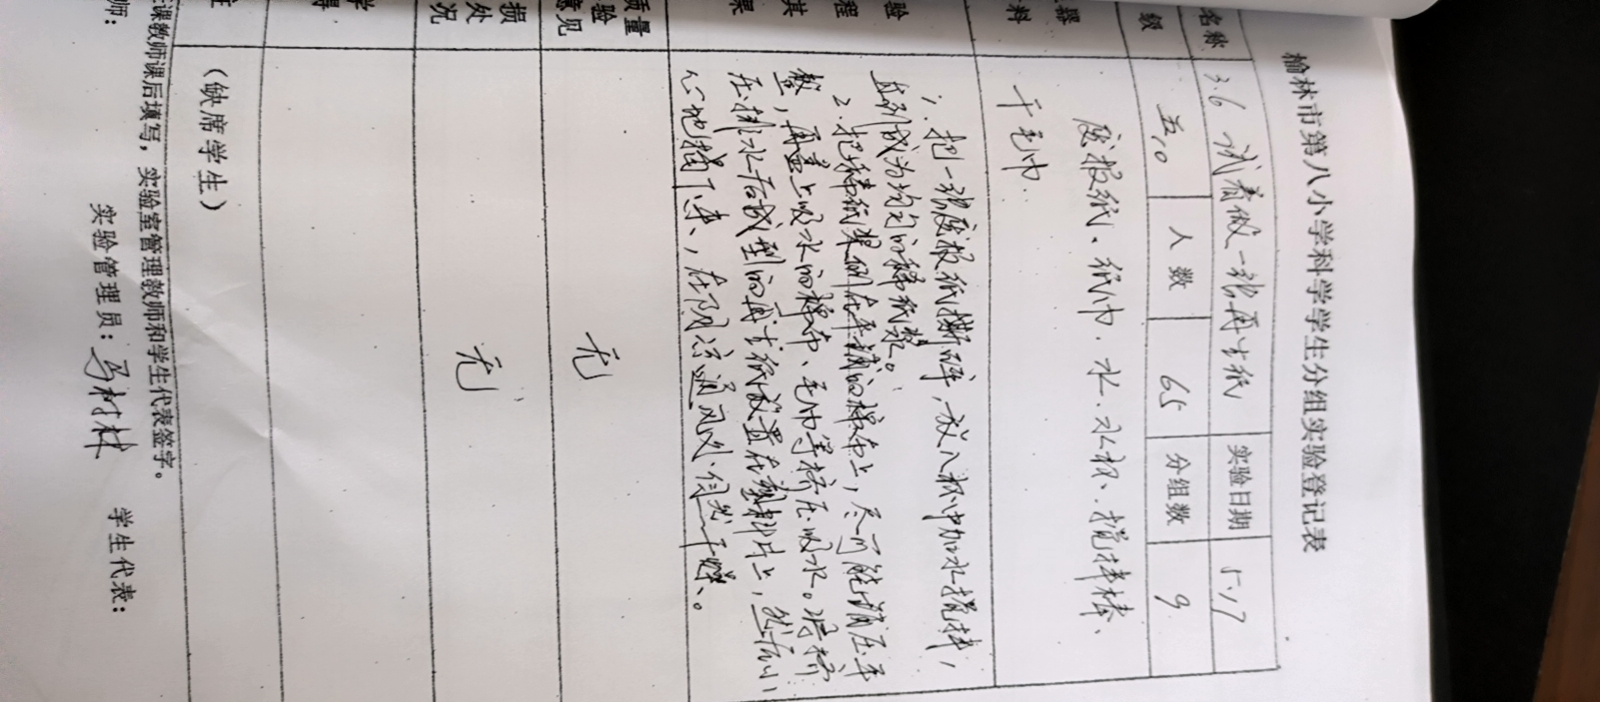 榆林市第八小学科学学生分组实验登记表
名称 3.6 试着做一张再生纸 实验日期 5.17
级 五.10 人数 65 分组数 9
器 废报纸、纸巾、水、水杯、搅拌棒、
料 干毛巾.
验 1. 把一张废报纸撕碎,放入杯中加水搅拌,
程 直到成为均匀的稀纸浆。
其 2. 把稀纸浆倒在平铺的棉布上,尽可能铺压平
果 整,再盖上吸水的棉布、毛巾等挤压吸水。将挤
压排水后成型的再生纸放置在塑料片上,然后小
心地揭下来,在阴凉通风处自然干燥。
质量
验
意见 无
损
处
况 无
学
得
注 (缺席学生)
任课教师课后填写,实验室管理教师和学生代表签字。
师: 实验管理员: 学生代表: